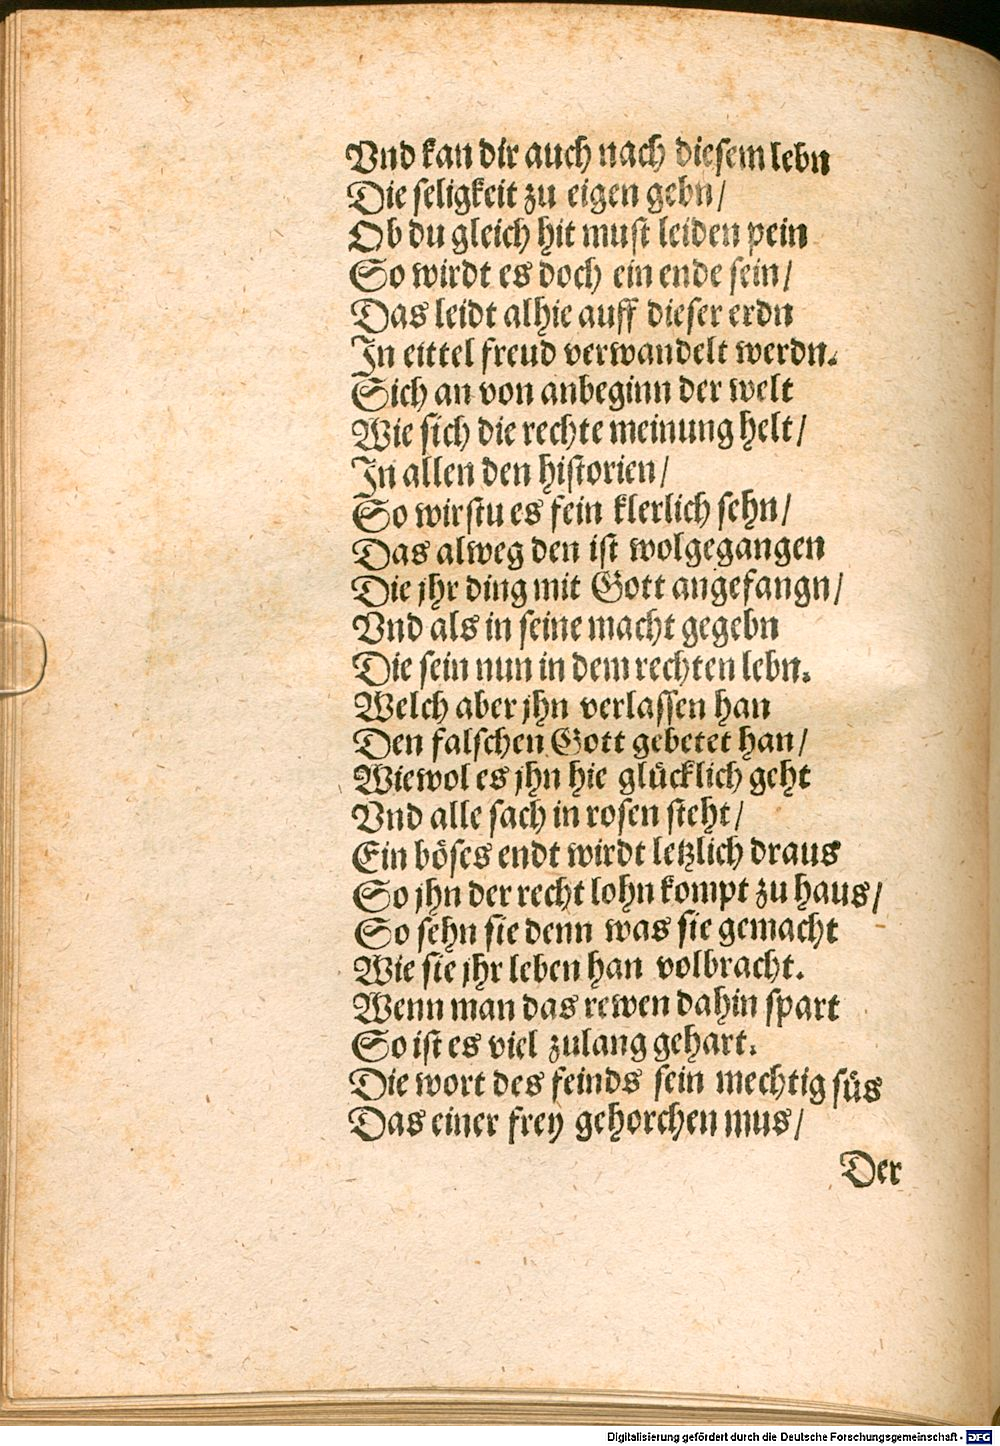 Vnd kan dir auch nach diesem lebn
Die seligkeit zu eigen gebn/
Ob du gleich hit must leiden pein
So wirdt es doch ein ende sein/
Das leidt alhie auff dieser erdn
In eittel freud verwandelt werdn.
Sich an von anbeginn der welt
Wie sich die rechte meinung helt/
In allen den historien/
So wirstu es fein klerlich sehn/
Das alweg den ist wolgegangen
Die jhr ding mit Gott angefangn/
Vnd als in seine macht gegebn
Die sein nun in dem rechten lebn.
Welch aber jhn verlassen han
Den falschen Gott gebetet han/
Wiewol es jhn hie glücklich geht
Vnd alle sach in rosen steht/
Ein böses endt wirdt letzlich draus
So jhn der recht lohn kompt zu haus/
So sehn sie denn was sie gemacht
Wie sie jhr leben han volbracht.
Wenn man das rewen dahin spart
So ist es viel zulang gehart.
Die wort des feinds sein mechtig süs
Das einer frey gehorchen mus/
Der
Digitalisierung gefördert durch die Deutsche Forschungsgemeinschaft - DFG